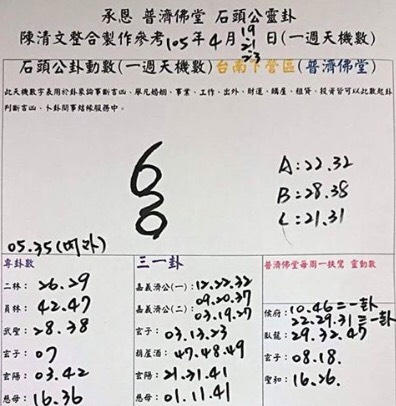 承恩 普濟佛堂 石頭公靈卦
陳清文整合製作參考105年4月19 21 23日(一週天機數)
石頭公卦動數(一週天機數)台南下營區(普濟佛堂)
此天機數字表用於卦象論事斷吉凶、舉凡婚姻、事業、工作、出外、財運、購屋、租賃、投資皆可以此數起卦
判斷吉凶、卜卦問事結緣服務中。
A:22.32
B:28.38
C:21.31
05.35
專卦數
二林:26.29
員林:42.47
武聖:28.38
玄子:07
玄陽:03.42
慈母:16.36
三一卦
嘉義濟公(一):12.22.32
09.20.37
嘉義濟公(二):03.19.27
玄子:03.13.23
葫蘆酒:47.48.49
玄陽:21.31.41
慈母:01.11.41
普濟佛堂每周一扶鸞 靈動數
候府:10.46=一卦
22.29.31=一卦
臥龍:29.32.47
玄子:08.18.
聖和:16.26.